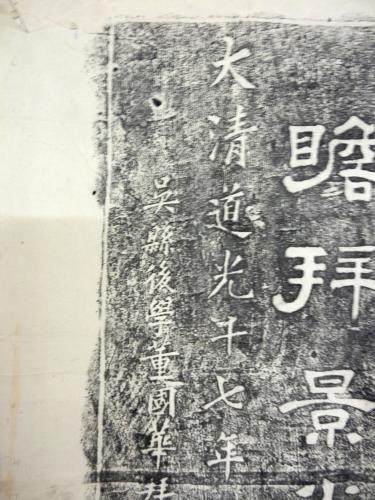 瞻拜景
大清道光十七年
吳縣後學董國華拜